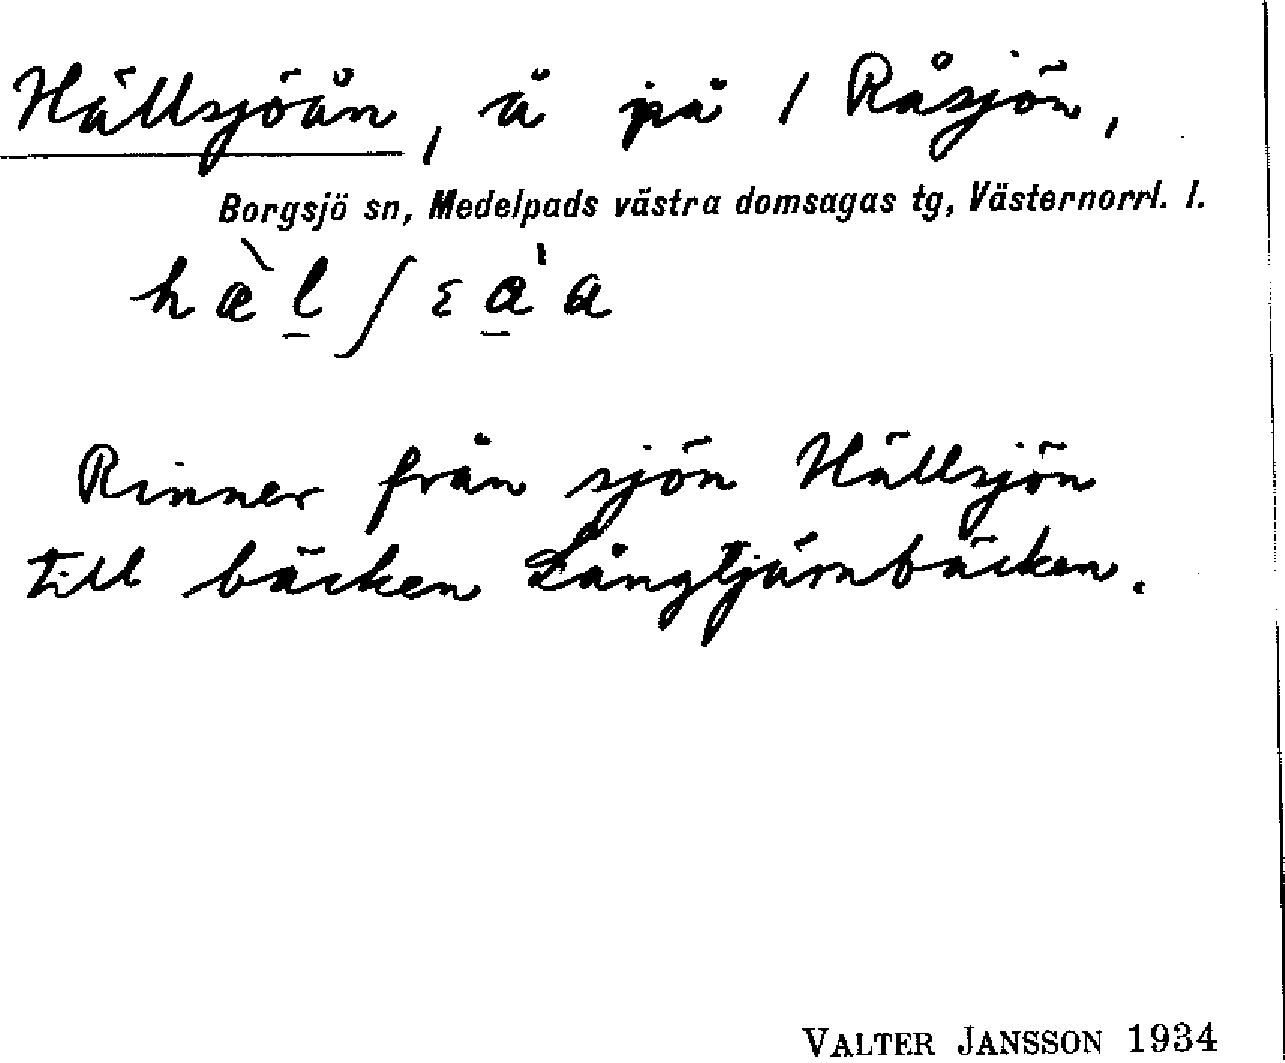 Hällsjöån, å på 1 Råsjön,
Borgsjö sn, Medelpads västra domsagas tg, Västernorrl. l.
hæ̀l̠ʃɛa̠ˈa
Rinner från sjön Hällsjön
till bäcken Långtjärnbäcken.
VALTER JANSSON 1934